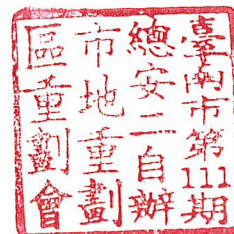 臺南市第111期
總安二自辦
市地重劃
區重劃會